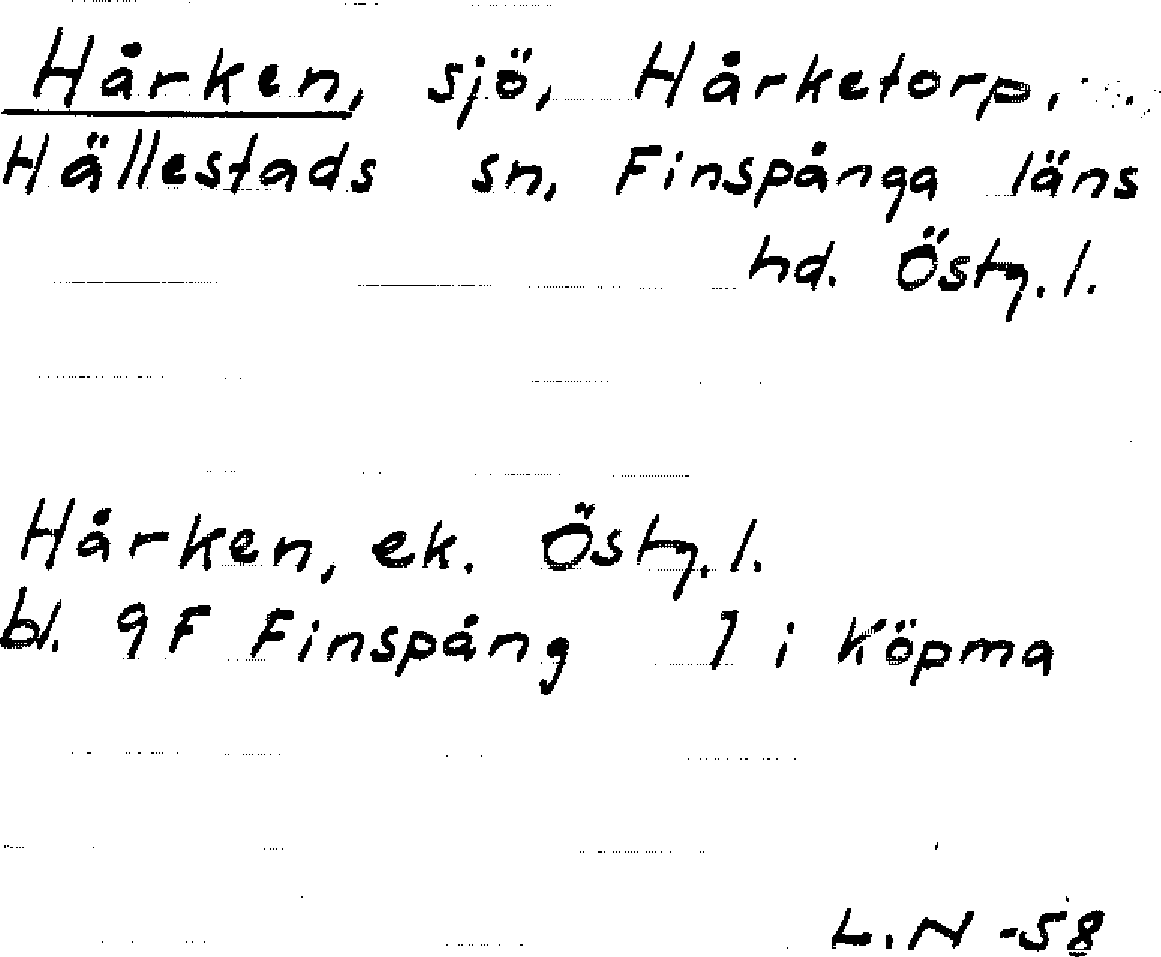 Hårken, sjö, Hårketorp,
Hällestads sn, Finspånga läns
hd. Östg. l.
Hårken, ek. Östg. l.
bl. 9F Finspång 7 i Köpma
L.N -58